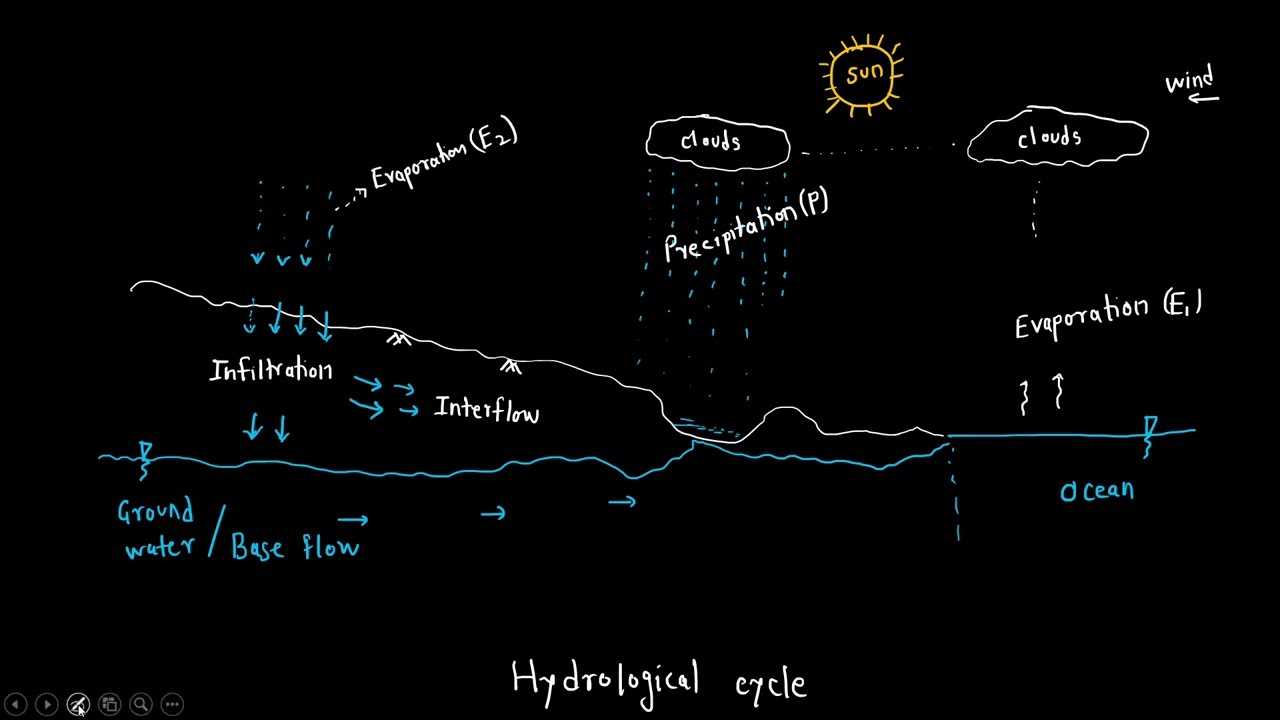 sun
wind
←
clouds
clouds
Evaporation (E2)
Precipitation (P)
Evaporation (E1)
Infiltration
Interflow
Ocean
Ground
water / Base flow
Hydrological cycle